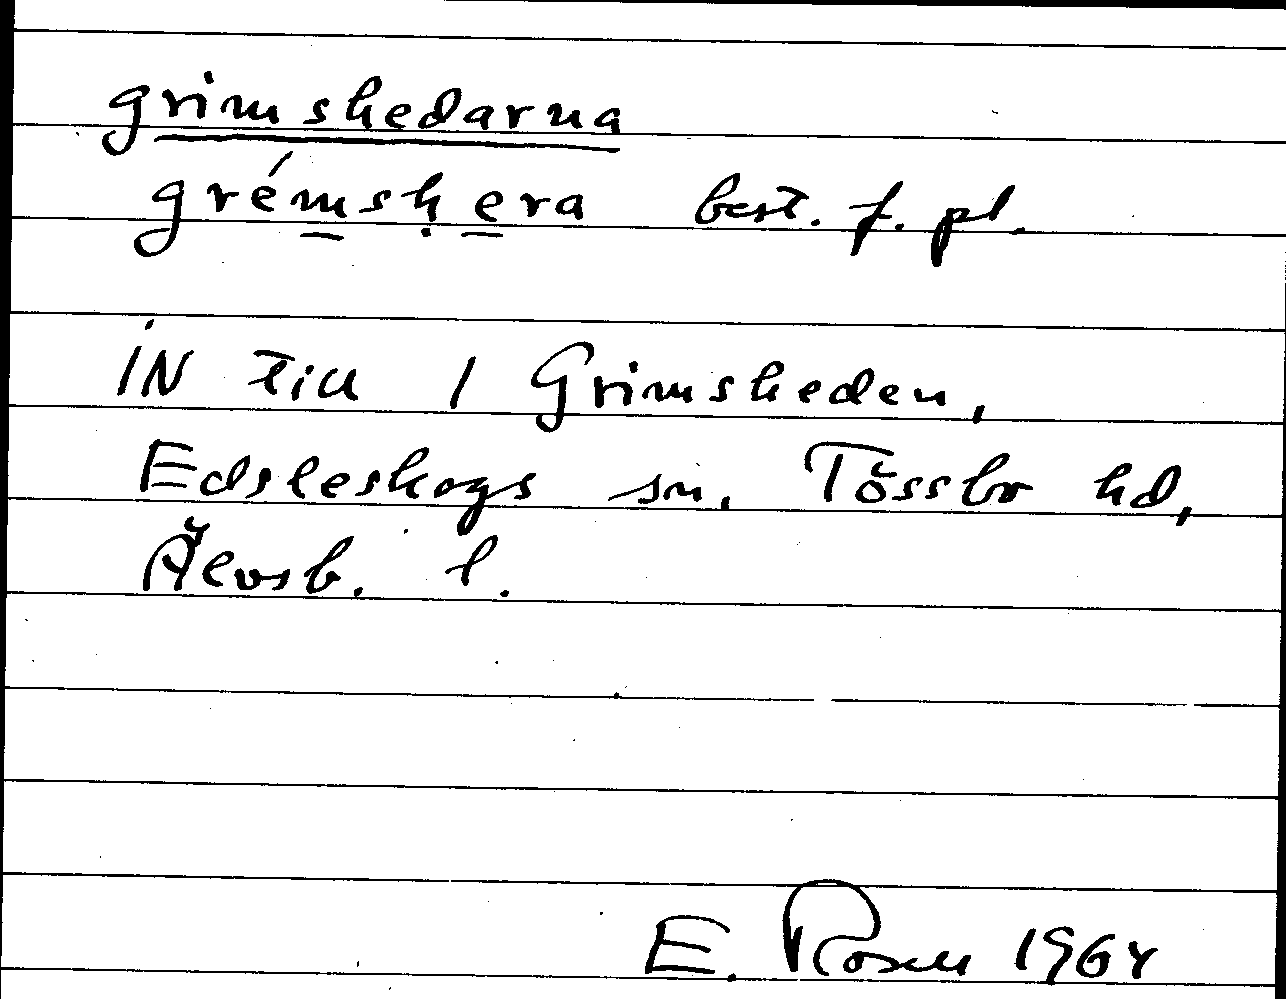 grimshedarna
grémsḥera best. f. pl.
IN till 1 Grimsheden,
Edsleskogs sn. Tössbo hd,
Älvsb. l.
E. Rosen 1964